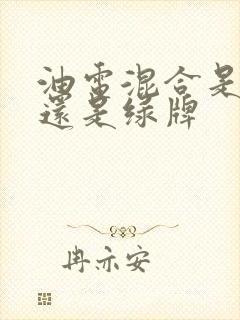 油電混合是
還是绿牌
冉亦安